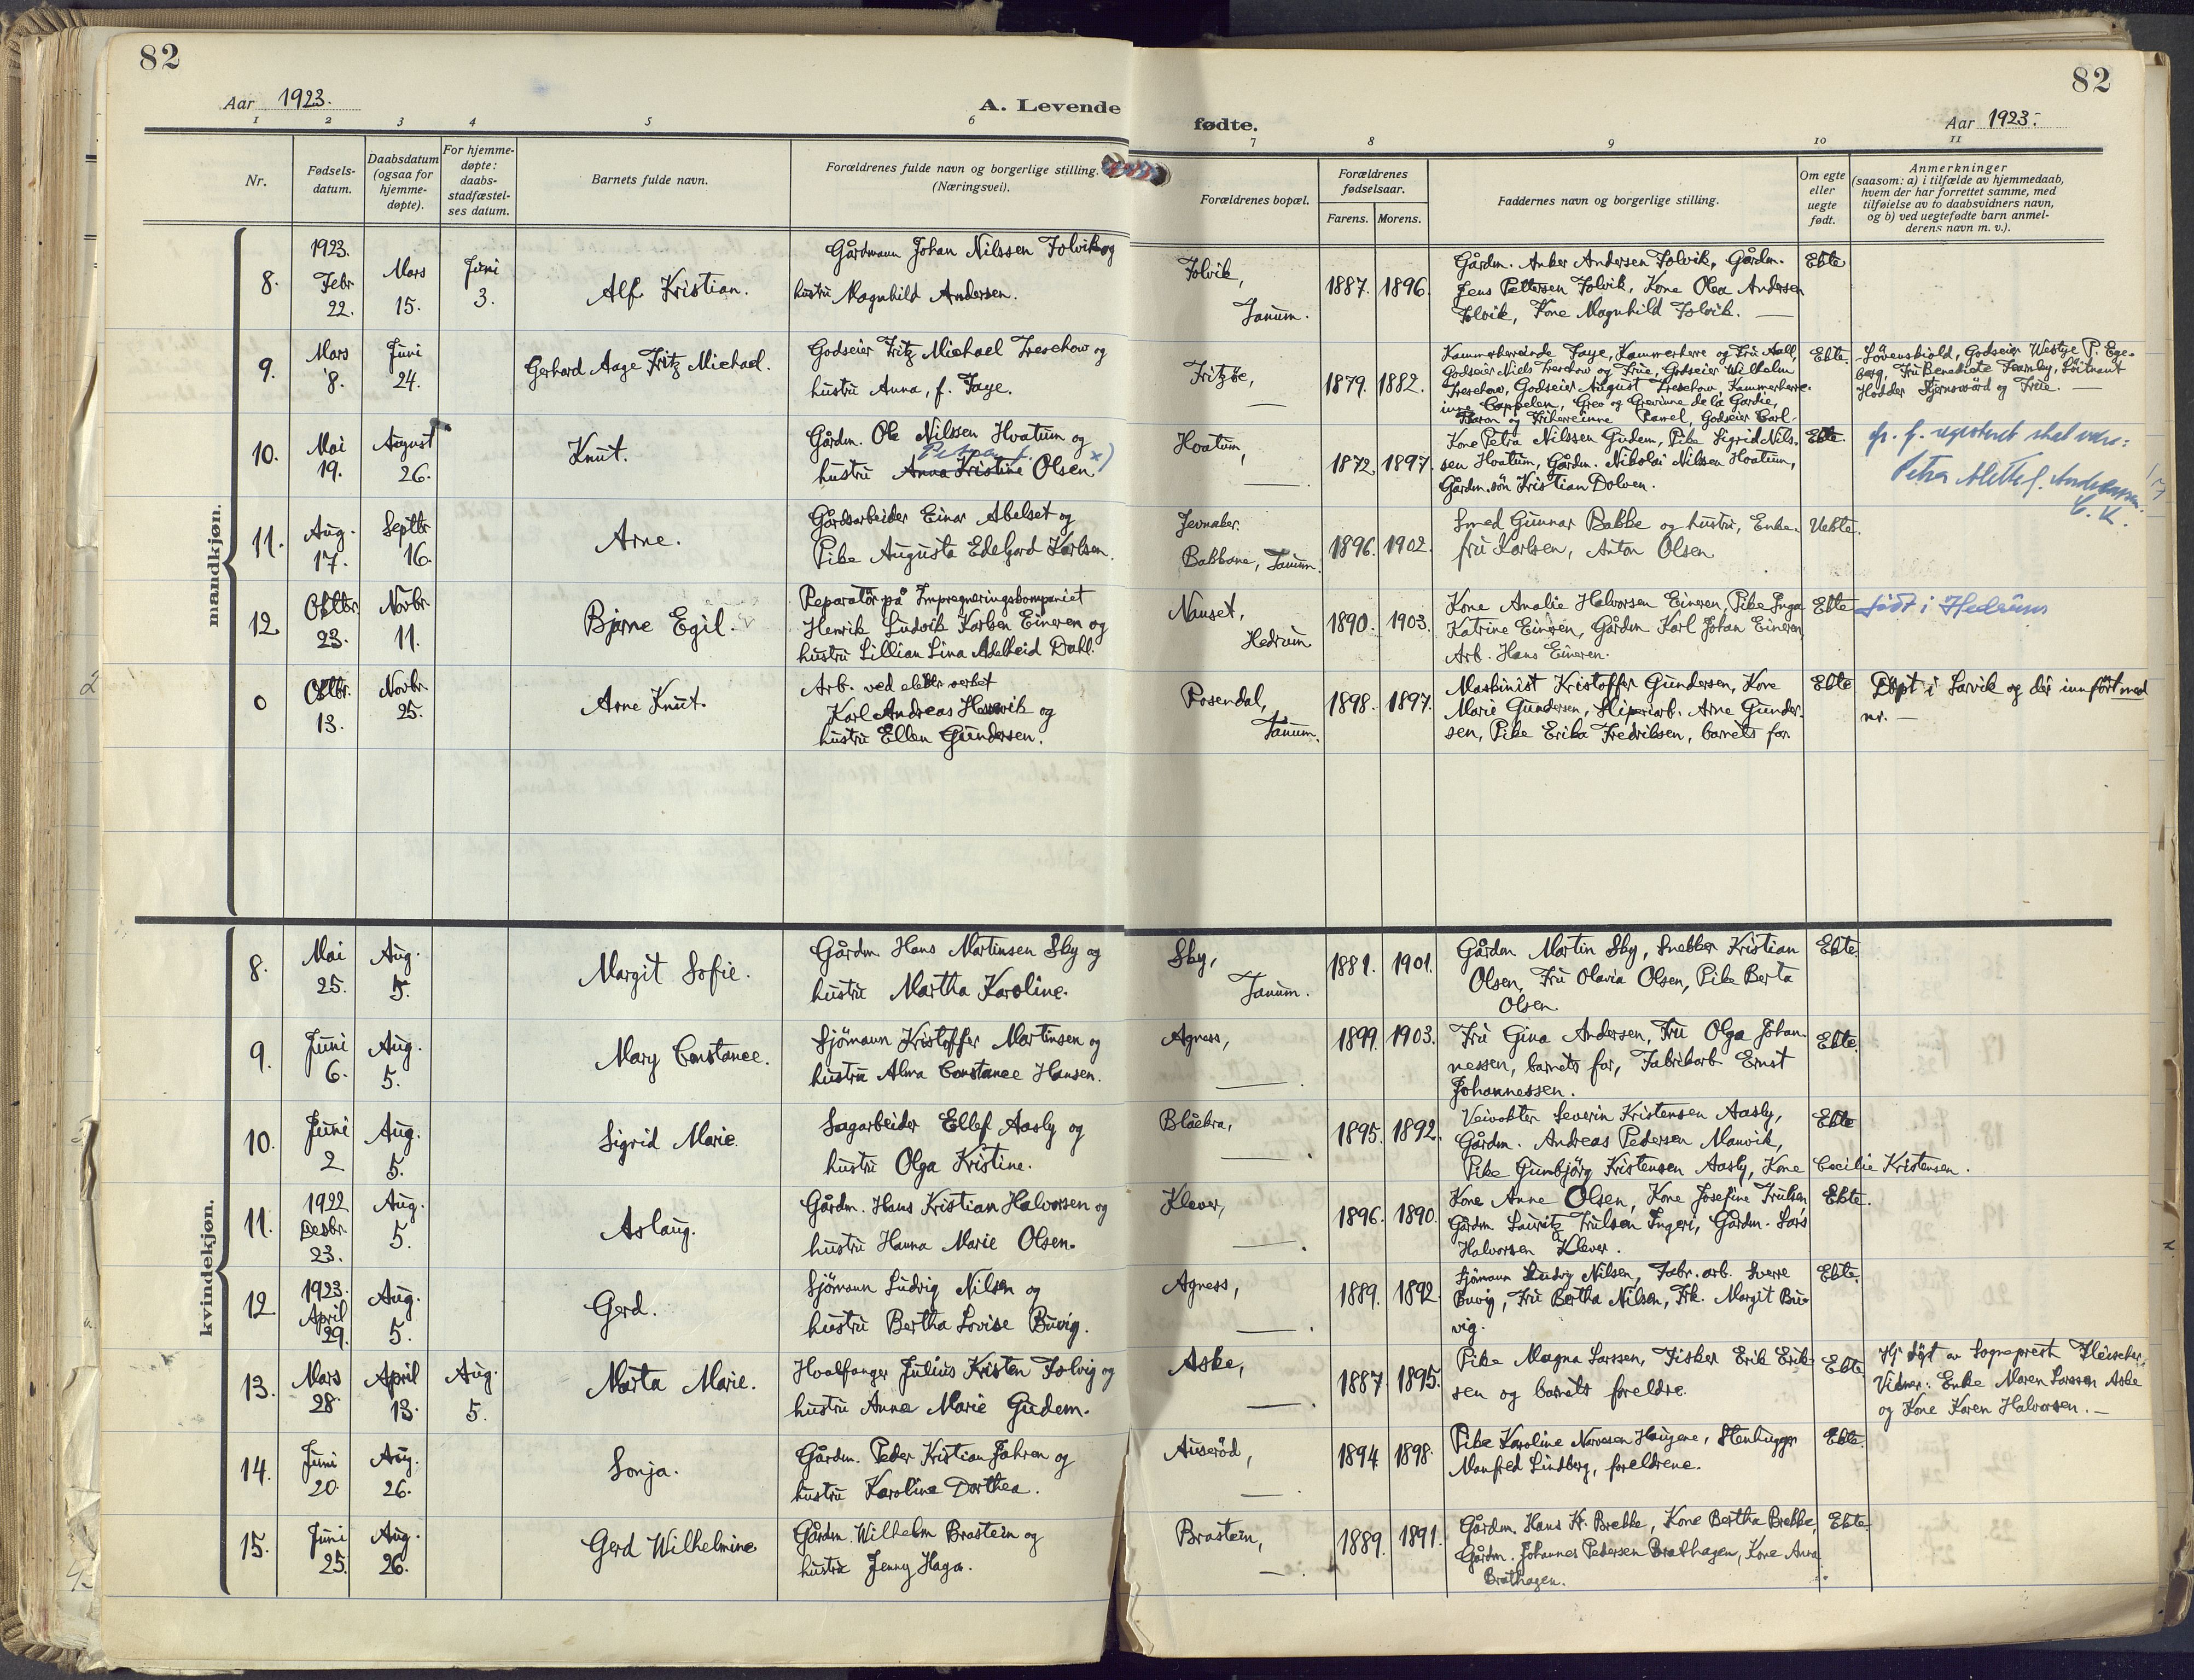 82
82
Aar 1923.
A. Levende
fødte.
Aar 1923.
1 2 3 4 5 6 7 8 9 10 11
Nr.
Fødsels-
datum.
Daabsdatum
(ogsaa for
hjemme-
døpte).
For hjemme-
døpte:
daabs-
stadfæstel-
ses datum.
Barnets fulde navn.
Forældrenes fulde navn og borgerlige stilling.
(Næringsvei).
Forældrenes bopæl.
Forældrenes
fødselsaar.
Farens. Morens.
Faddernes navn og borgerlige stilling.
Om egte
eller
uegte
født.
Anmerkninger
(saasom: a) i tilfælde av hjemmedaab,
hvem der har forrettet samme, med
tilføielse av to daabsvidners navn,
og b) ved uegtefødte barn anmel-
derens navn m. v.).
mandkjøn.
8.
1923.
Febr
22.
Mars
15.
Juni
3.
Alf Kristian.
Gårdmann Johan Nilssen Folvik og
hustru Magnhild Andersen.
Folvik,
Tanum.
1887. 1896.
Gårdm. Anker Andersen Folvik, Gårdm.
Jens Pettersen Folvik, Kone Olea Andersen
Folvik, Kone Magnhild Folvik. —
Ekte
9.
Mars
8.
Juni
24.
Gerhard Aage Fritz Michael.
Godseier Fritz Michael Treschow og
hustru Anna, f. Faye.
Fritzøe,
—
1879. 1882.
Kammerherreinde Faye, Kammerherre og Fru Aall,
Godseier Niels Treschow og Frue, Godseier Wilhelm
Treschow, Godseier August Treschow Kammerherre-
inne Cappelen, Grev og Grevinne de la Gardie,
Baron og Friherreinne Ramel, Godseier Carl
Ekte.
Løvenskiold, Godseier Westye P. Ege-
berg, Fru Benedicte Fearnley, Løitnant
Hodder Stjernswärd og Frue. —
10.
Mai
19.
August
26.
Knut.
Gårdm. Ole Nilssen Hvatum og
hustru Anna Kristine Olsen x)
Hvatum,
—
1872. 1897.
Kone Petra Nilssen Gudem, Pike Sigrid Nils-
sen Hvatum, Gårdm. Nikolai Nilssen Hvatum,
Gårdm.søn Kristian Dolven.
Ekte.
skal være:
Petra Mette f. Andersen.
C. K.
11.
Aug.
17.
Septbr
16.
Arne.
Gårdsarbeider Einar Abelset og
Pike Augusta Edelgard Karlsen.
Jevnaker.
Bakkane, Tanum.
1896. 1902.
Smed Gunnar Bakke og hustru, Enke-
fru Karlsen, Anton Olsen.
Uekte.
12.
Oktbr.
23.
Novbr.
11.
Bjarne Egil.
Reparatør på Impregneringskompaniet
Henrik Ludvik Karlsen Eineren og
hustru Lillian Lina Adelheid Dahl.
Nanset,
Hedrum
1890. 1903.
Kone Amalie Halvorsen Eineren, Pike Inga
Katrine Eineren, Gårdm Karl Johan Eineren
Arb. Hans Eineren.
Ekte
født i Hedrum
0
Oktbr.
13.
Novbr.
25.
Arne Knut.
Arb. ved elektr. verket
Karl Andreas Hassevik og
hustru Ellen Gundersen.
Rosendal,
Tanum.
1898. 1897.
Maskinist Kristoffer Gundersen, Kone
Marie Gundersen, Sliperiarb. Arne Gunder-
sen, Pike Erika Fredriksen, barnets far
Ekte
Døpt i Larvik og dér innført med
nr. —
kvindekjøn.
8.
Mai
25.
Aug.
5.
Margit Sofie.
Gårdm. Hans Martinsen Sky og
hustru Martha Karoline.
Sky,
Tanum.
1881. 1901.
Gårdm Martin Sky, Snekker Kristian
Olsen, Fru Olavia Olsen, Pike Berta
Olsen
Ekte.
9.
Juni
6.
Aug.
5.
Mary Constance.
Sjömann Kristoffer Martinsen og
hustru Alma Constance Hansen.
Agness,
—.
1899. 1903.
Fru Gina Andersen, Fru Olga Johan-
nessen, barnets far, Fabrikarb. Ernst
Johannessen.
Ekte.
10.
Juni
2
Aug.
5.
Sigrid Marie.
Sagarbeider Ellef Aasly og
hustru Olga Kristine.
Blåekra,
—.
1895. 1892.
Veivokter Severin Kristensen Aasly,
Gårdm. Andreas Pedersen Manvik,
Pike Gunbjörg Kristensen Aasly, Kone Cecilie Kristensen.
Ekte
11.
1922
Desbr.
23.
Aug.
5.
Aslaug.
Gårdm. Hans Kristian Halvorsen og
hustru Hanna Marie Olsen.
Klever,
—.
1896. 1890.
Kone Anne Olsen, Kone Josefine Trulsen
Gårdm Lauritz Trulsen Ingeri, Gårdm. Lars
Halvorsen Klever.
Ekte.
12.
1923.
April
29.
Aug.
5.
Gerd.
Sjömann Ludvig Nilsen og
hustru Bertha Lovise Buvig.
Agness,
—.
1889. 1892.
Sjömann Ludvig Nilsen, Fabr. arb. Sverre
Buvig, Fru Bertha Nilsen, Frk. Margit Bu-
vig.
Ekte.
13.
Mars
28.
April
13.
Aug.
5.
Marta Marie.
Hvalfanger Julius Kristen Folvig og
hustru Anna Marie Gudem.
Aske,
—.
1887. 1895.
Pike Magna Larssen, Fisker Erik Erik-
sen og barnets foreldre.
Ekte
Hj. døpt av Sogneprest Fleischer.
Vidner: Enke Maren Larssen Aske
og Kone Karen Halvorsen. —
14.
Juni
20.
Aug.
26.
Sonja.
Gårdm. Peder Kristian Jahren og
hustru Karoline Dorthea.
Auserød,
—.
1894 1898.
Pike Karoline Narvesen Haugene, Stenhugger
Manfred Lindberg, foreldrene.
Ekte.
15.
Juni
25.
Aug.
26.
Gerd Wilhelmine
Gårdm. Wilhelm Brastein og
hustru Jenny Haga.
Brastein,
—
1889. 1891.
Gårdm. Hans Kr. Brekke, Kone Bertha Brekke,
Gårdm. Johannes Pedersen Brathagen, Kone Anna
Brathagen.
Ekte.